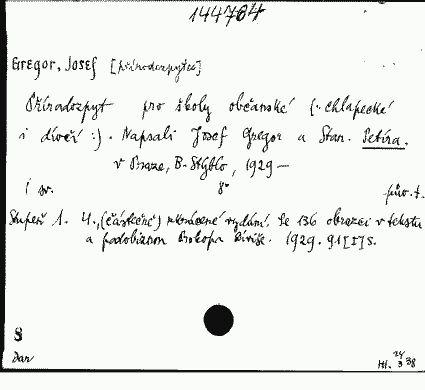 144704
Gregor, Josef [přírodozpytec]
Přírodozpyt pro školy občanské (: chlapecké
i dívčí :). Napsali Josef Gregor a Stan. Petíra.
v Praze, B. Stýblo, 1929 —
1 sv. 8° pův. t.
Stupeň 1. 4., (částečně) zkrácené vydání. Se 136 obrazci v textu
a podobiznou Prokopa Diviše. 1929. 91 [I] s.
S
Dar
III. 38